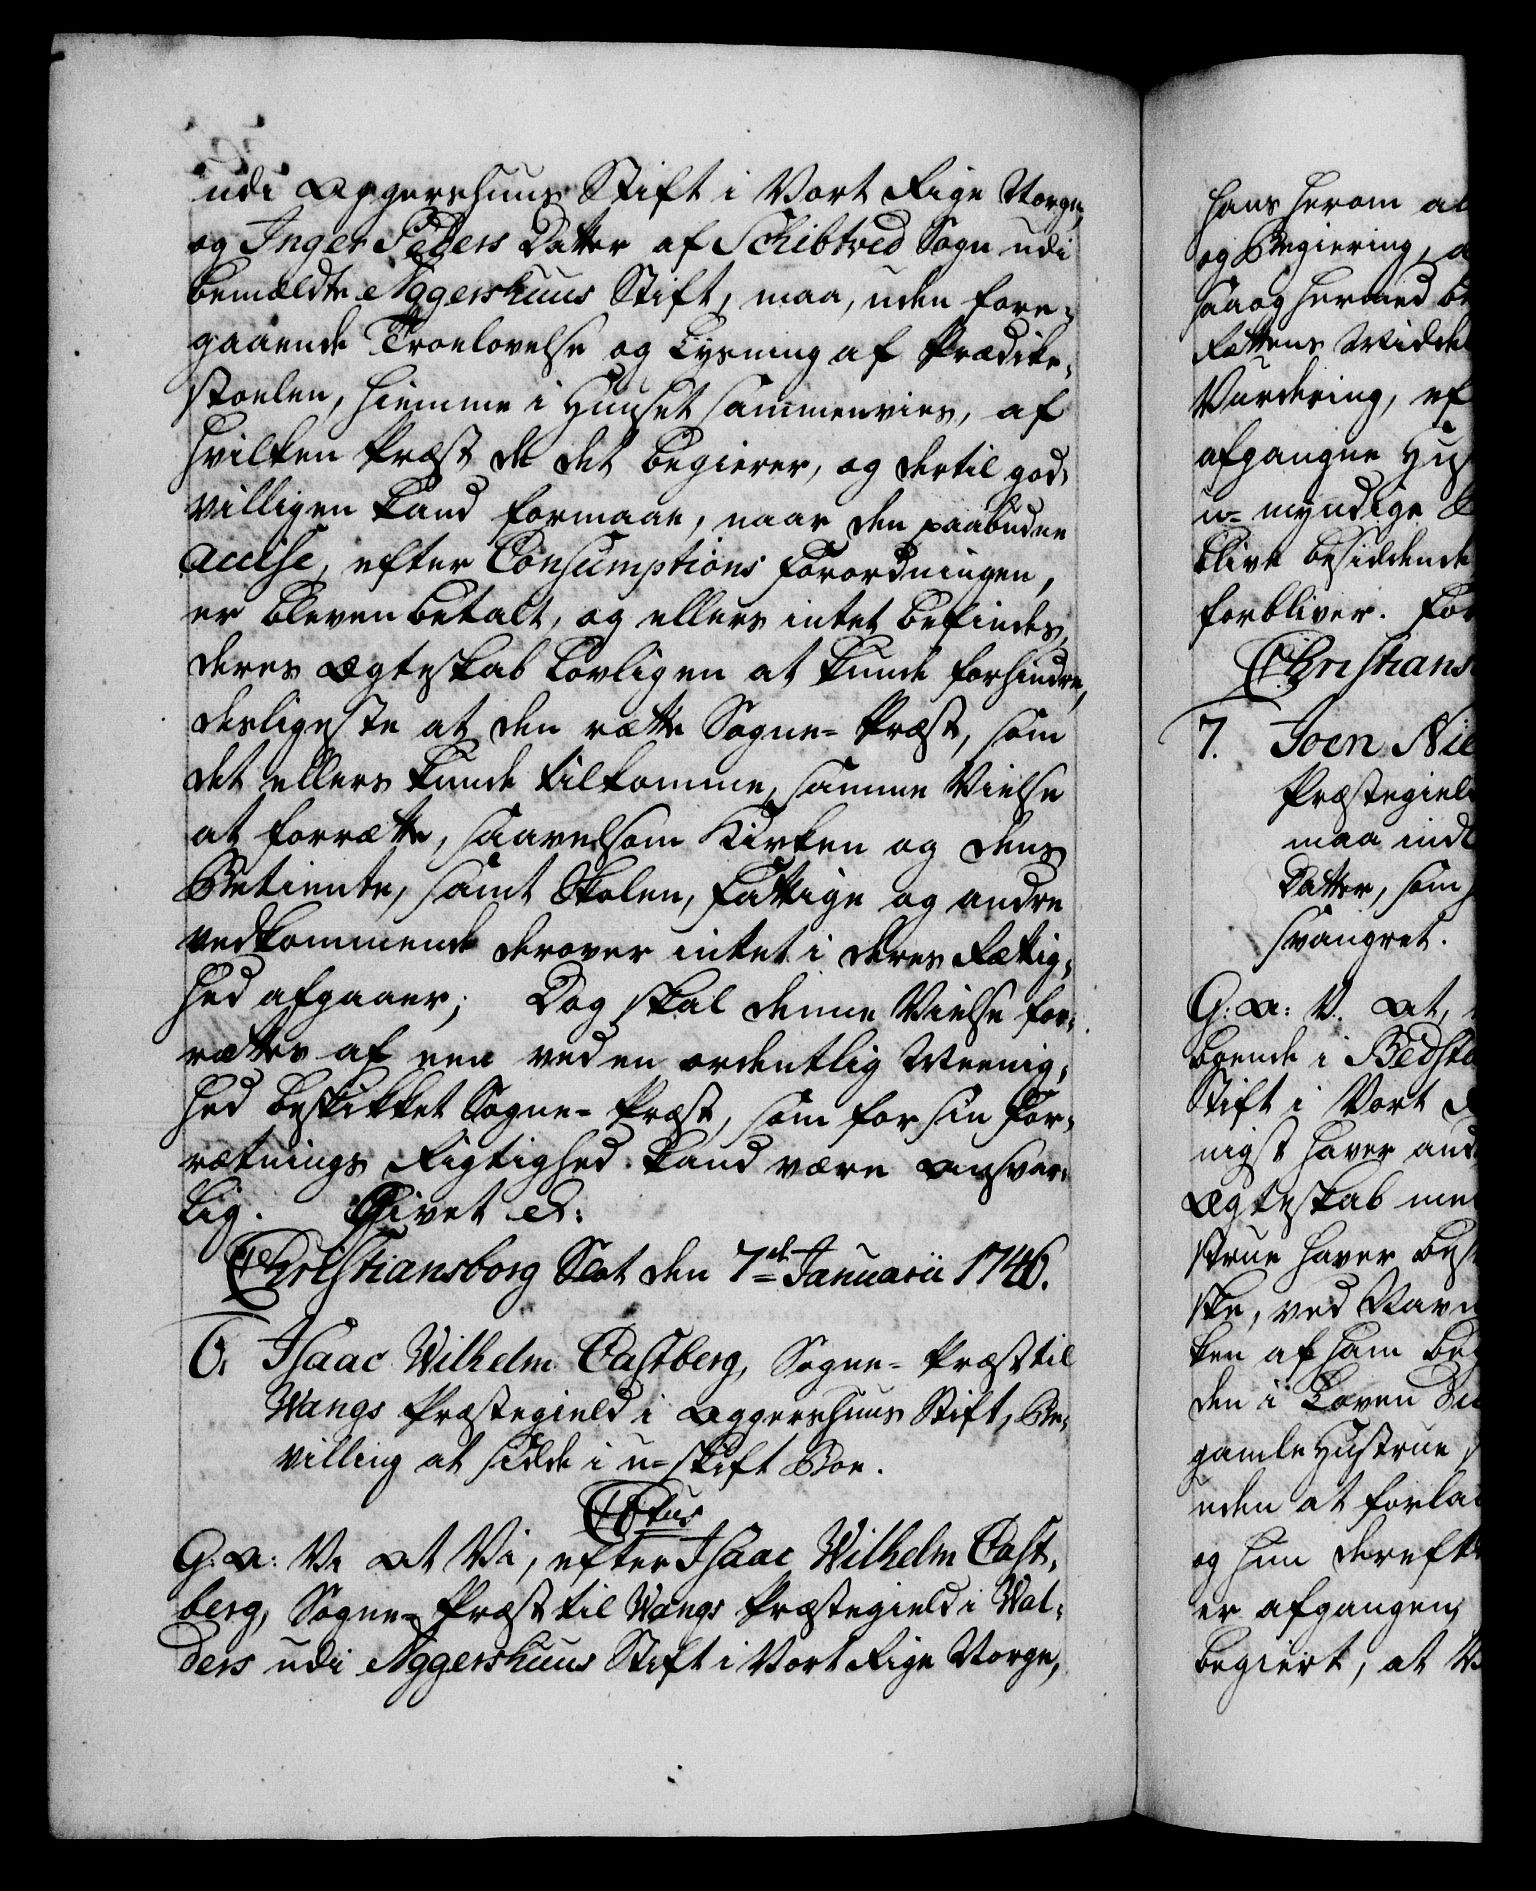 udi Aggershuus Stift i Vort Rige Norge,
og Inger Peders Datter af Schibtved Sogn udi
bemældte Aggershuus Stift, maa, uden fore-
gaaende Troelovelse og Lysning af Prædike-
stoelen, hiemme i Huuset sammenvies, af
hvilken Præst de det begierer, og dertil god-
villigen kand formaae, naar den paabudne
accise, efter Consumptions Forordningen,
er bleven betalt, og ellers intet befindes,
deres Ægteskab lovligen at kunde forhindre,
desligeste at den rætte Sogne-Præst, som
det ellers kunde tilkomme, samme Vielse
at forrætte, saavelsom Kirken og dens
Betiente, samt Skolen, Fattige og andre
vedkommende derover intet i deres Rettig-
hed afgaaer; Dog skal denne Vielse for-
rættes af een ved en ordentlig Meenig-
hed beskikket Sogne-Præst, som for sin For-
rætnings Rigtighed kand være ansvar-
lig. Givet etc:
Christiansborg Slot den 7de Januarii 1746.
6. Isaac Wilhelm Castberg, Sogne-Præst til
Wangs Præstegield i Aggershuus Stift, Be-
villing at sidde i u-skift Boe.
C 6tus
G: A: V. At Vi, efter Isaac Wilhelm Cast-
berg, Sogne-Præst til Wangs Præstegield i Wal-
ders udi Aggershuus Stift i Vort Rige Norge,
hans herom al
og Begiering, a
saa og hermed be
Rettens Middel
Vurdering, ef
afgangne Hus
u-myndige B
blive besiddende
forbliver. For
Christians
7. Joen Nie
Præstegield
maa indl
Datter, som h
svangret.
G: A: V. At,
boende i Bedsta
Stift i Vort R
nigst haver and
Ægteskab med
strue haver besv
ske, ved Navn
ken af ham beg
den i Loven
gamle Hustrue
uden at forla
og hun dereft
er afgangen,
begiert, at V